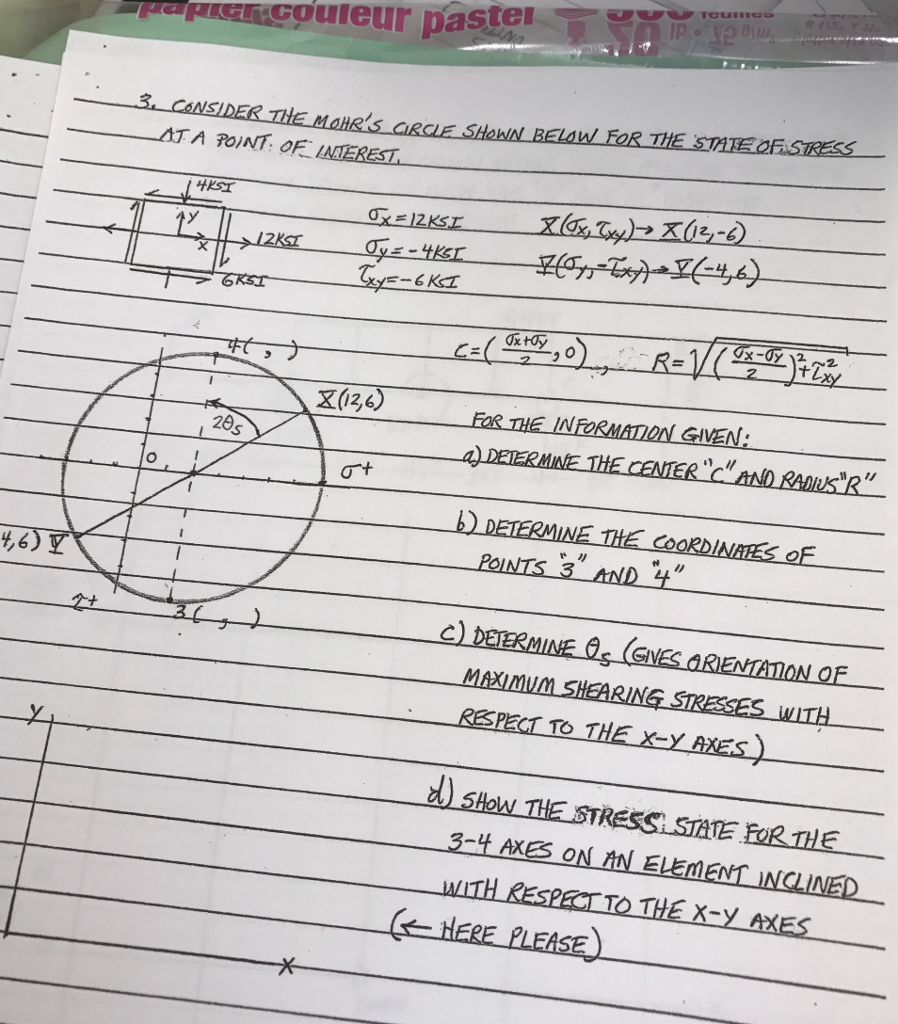 papier couleur pastel
3. CONSIDER THE MOHR'S CIRCLE SHOWN BELOW FOR THE STATE OF STRESS
AT A POINT OF INTEREST.
4KSI
Y
X
12KSI
6KSI
σx=12KSI
σy=-4KSI
τxy=-6KSI
X(σx,τxy)→X(12,-6)
Y(σy,-τxy)→Y(-4,6)
4( , )
X(12,6)
2θs
O
σ+
4,6) Y
τ+
3( , )
C=(σx+σy/2,0), R=√(σx-σy/2)²+τ²xy
FOR THE INFORMATION GIVEN:
a) DETERMINE THE CENTER "C" AND RADIUS "R"
b) DETERMINE THE COORDINATES OF
POINTS "3" AND "4"
c) DETERMINE θs (GIVES ORIENTATION OF
MAXIMUM SHEARING STRESSES WITH
RESPECT TO THE X-Y AXES)
d) SHOW THE STRESS STATE FOR THE
3-4 AXES ON AN ELEMENT INCLINED
WITH RESPECT TO THE X-Y AXES
(← HERE PLEASE)
Y
X